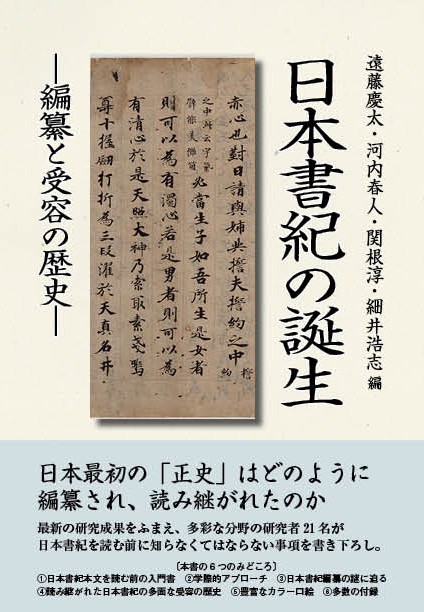 遠藤慶太・河内春人・関根淳・細井浩志 編
日本書紀の誕生
―編纂と受容の歴史―
赤心也對曰請與姉共誓夫誓約之中 誓約
之中此云宇氣
譬能美儺箇
必當生子如吾所生是女者
則可以為有濁心若是男者則可以為
有清心於是天照大神乃索取素戔嗚
尊十握劔打折為三段濯於天真名井
日本最初の「正史」はどのように
編纂され、読み継がれたのか
最新の研究成果をふまえ、多彩な分野の研究者21名が
日本書紀を読む前に知らなくてはならない事項を書き下ろし。
〔本書の6つのみどころ〕
①日本書紀本文を読む前の入門書　②学際的アプローチ　③日本書紀編纂の謎に迫る
④読み継がれた日本書紀の多面な受容の歴史　⑤豊富なカラー口絵　⑥多数の付録